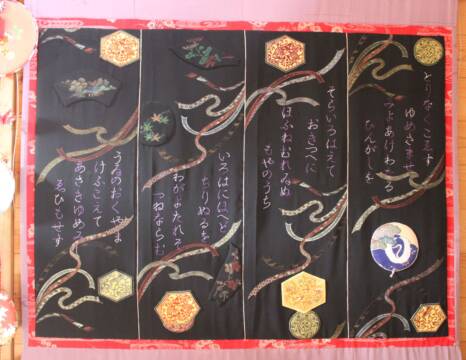 とりなくこゑす
ゆめさませ
みよあけわたる
ひんがしを
そらいろはえて
おきつへに
ほふねむれゐぬ
もやのうち
いろはにほへど
ちりぬるを
わがよたれぞ
つねならむ
うゐのおくやま
けふこえて
あさきゆめみ
ゑひもせす